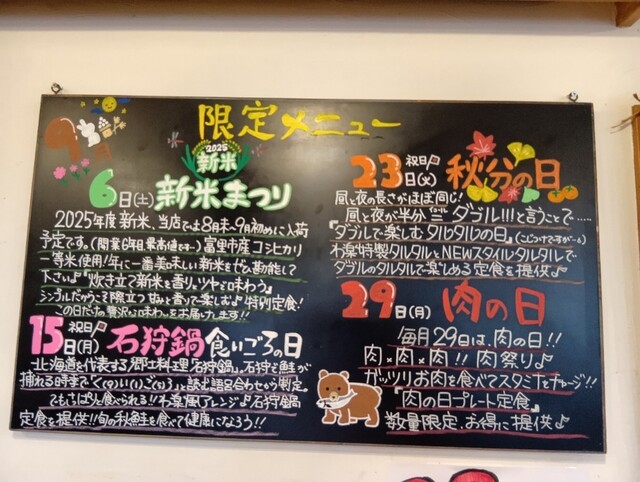 限定メニュー
9
2025
新米
6日(土) 新米まつり
2025年度新米、当店では8月末〜9月初めに入荷
予定です。(開業6年目最高値です…)富里市産コシヒカリ
一等米使用!年に一番美味しい新米をぜひ堪能して
下さい♪『炊き立て新米を香り、ツヤと味わう』
シンプルだからこそ際立つ甘みと香りを楽しむ♪特別定食!
この日だけの贅沢な味わいをお届けします!!
15日(月) 祝日 石狩鍋 食いごろの日
北海道を代表する郷土料理『石狩鍋』。石狩で鮭が
捕れる時まで『く(9)い(1)ご(5)ろ』と読む語呂合わせから制定。
でもいちばんと食べられる!!わ楽風アレンジ♪石狩鍋
定食を提供!!旬の秋鮭を食べて健康になろう!!
23日(火) 祝日 秋分の日
昼と夜の長さがほぼ同じ!
昼と夜が半分ニニダブル!!!と言うことで……
『ダブルで楽しむタルタルの日』(こじつけですが…)
わ楽特製タルタルとNEWスタイルタルタルで
ダブルのタルタルで楽しめる定食を提供♪
29日(月) 肉の日
毎月29日は、肉の日!!
肉×肉×肉!! 肉祭り♪
ガッツリお肉を食べてスタミナをチャージ!!
『肉の日プレート定食』
数量限定、お得に提供♪